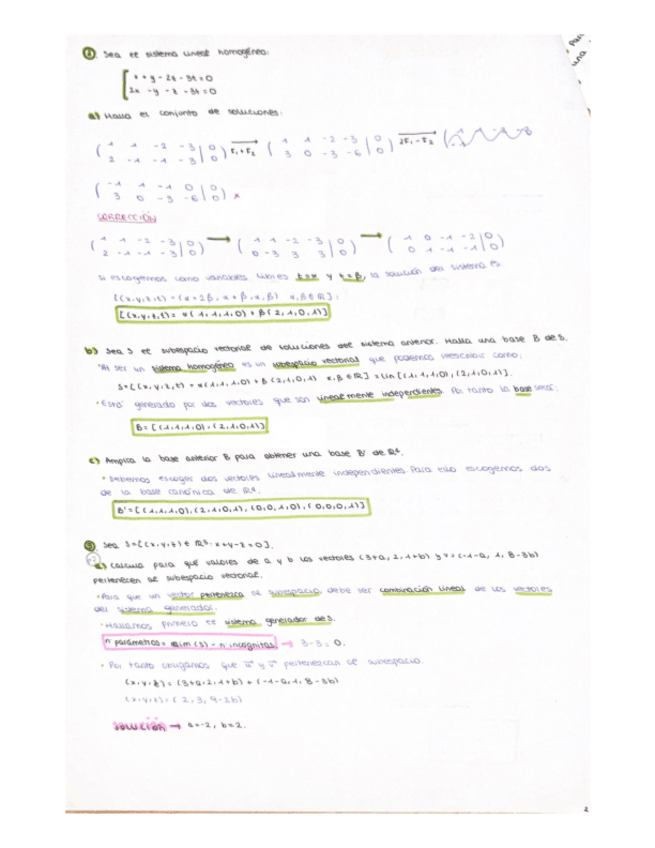 8. Sea el sistema lineal homogéneo:
x + y - 2z - 3t = 0
2x - y - z - 3t = 0
a) Halla el conjunto de soluciones:
( 1 1 -2 -3 | 0 ( 1 1 -2 -3 | 0
2 -1 -1 -3 | 0 ) F1+F2 3 0 -3 -6 | 0 ) 2F1-F2
( -1 1 -1 0 | 0
3 0 -3 -6 | 0 ) x
CORRECCIÓN
( 1 1 -2 -3 | 0 → ( 1 1 -2 -3 | 0 → ( 1 0 -1 -2 | 0
2 -1 -1 -3 | 0 ) 0 -3 3 3 | 0 ) 0 1 -1 -1 | 0 )
Si escogemos como variables libres z=α y t=β, la solución del sistema es
{(x,y,z,t) = (α+2β, α+β, α, β) α,β∈ℝ};
{(x,y,z,t) = α(1,1,1,0) + β(2,1,0,1)}
b) Sea S el subespacio vectorial de soluciones del sistema anterior. Halla una base B de S.
· Al ser un sistema homogéneo es un subespacio vectorial que podemos reescribir como;
S={(x,y,z,t) = α(1,1,1,0) + β(2,1,0,1) α,β∈ℝ} = Lin{(1,1,1,0),(2,1,0,1)}.
· Está generado por dos vectores que son linealmente independientes. Por tanto la base será;
B={(1,1,1,0),(2,1,0,1)}
c) Amplia la base anterior B para obtener una base B' de ℝ⁴.
· Debemos escoger dos vectores linealmente independientes. Para ello escogemos dos
de la base canónica de ℝ⁴.
B'={(1,1,1,0),(2,1,0,1),(0,0,1,0),(0,0,0,1)}
9. Sea S={(x,y,z)∈ℝ³: x+y-z=0}.
a) Calcula para qué valores de a y b los vectores (3+a, 2, 1+b) y v=(-1-a, 1, 8-3b)
pertenecen al subespacio vectorial.
· Para que un vector pertenezca al subespacio, debe ser combinación lineal de los vectores
del sistema generador.
· Hallamos primero el sistema generador de S.
n parámetros = dim(S) - n incógnitas → 3-3=0.
· Por tanto obligamos que u y v pertenezcan al subespacio.
(x,y,z) = (3+a,2,1+b) + (-1-a,1,8-3b)
(x,y,z) = (2,3,9-2b)
SOLUCIÓN → a=-2, b=2.
2